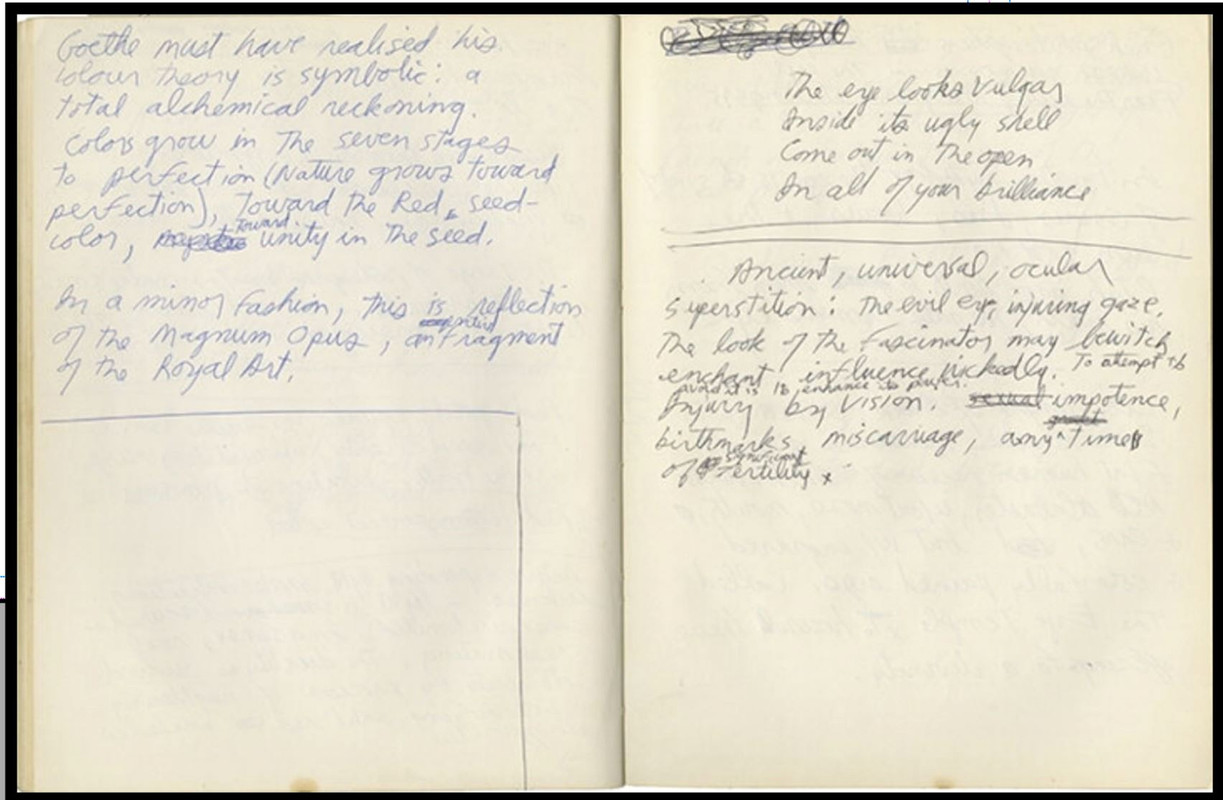 Goethe must have realised his
colour theory is symbolic: a
total alchemical reckoning.
Colors grow in The seven stages
to perfection (Nature grows toward
perfection), Toward The Red, seed-
color, Toward unity in The seed.
In a minor Fashion, This is reflection
of the Magnum Opus, an Fragment
of the Royal Art.
The eye looks vulgar
Inside its ugly shell
Come out in The open
In all of your brilliance
Ancient, universal, ocular
superstition: The evil eye, injuring gaze.
The look of The Fascinator may bewitch,
enchant, influence wickedly. To attempt to
avoid it is to enhance its power.
Injury by vision. sexual impotence,
birthmarks, miscarriage, any Time
of significant Fertility